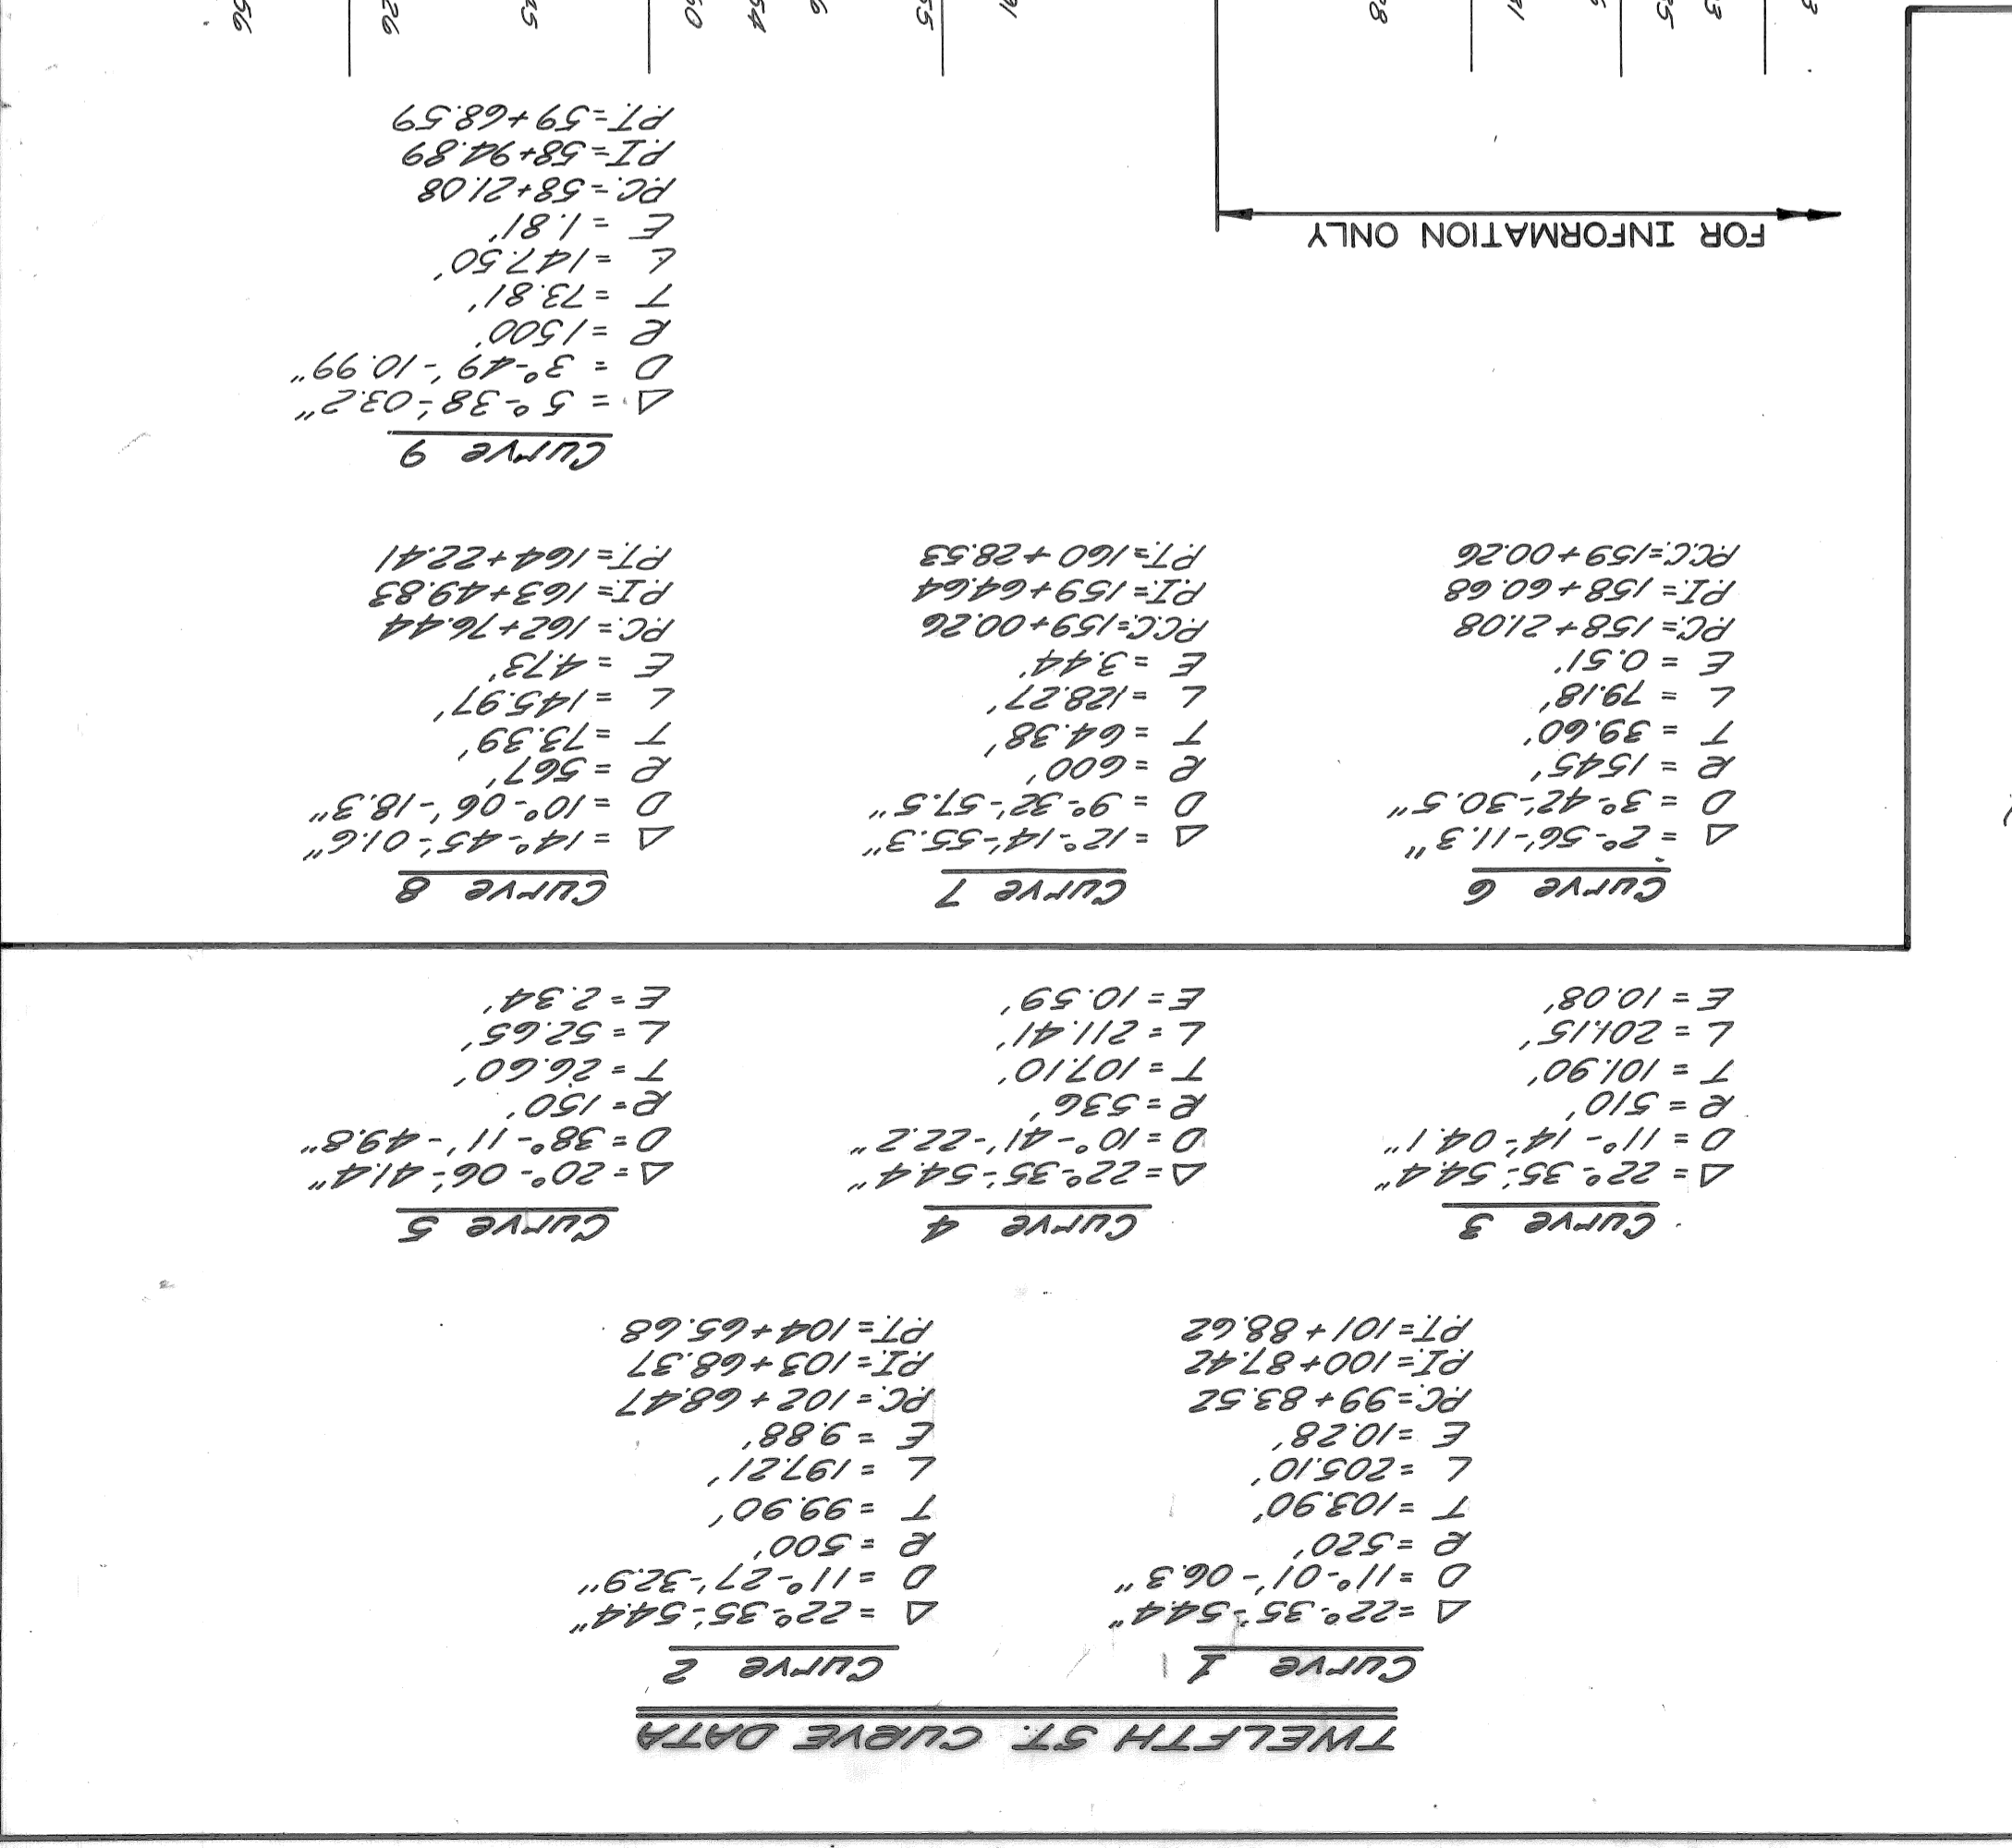 TWELFTH ST. CURVE DATA
Curve 1
Δ = 22°-35'-54.4"
D = 11°-01'-06.3"
R = 520'
T = 103.90'
L = 205.10'
E = 10.28'
P.C. = 99+83.52
P.I. = 100+87.42
P.T. = 101+88.62
Curve 2
Δ = 22°-35'-54.4"
D = 11°-27'-32.9"
R = 500'
T = 99.90'
L = 197.21'
E = 9.88'
P.C. = 102+68.47
P.I. = 103+68.37
P.T. = 104+65.68
Curve 3
Δ = 22°-35'-54.4"
D = 11°-14'-04.1"
R = 510'
T = 101.90'
L = 201.15'
E = 10.08'
Curve 4
Δ = 22°-35'-54.4"
D = 10°-41'-22.2"
R = 536'
T = 107.10'
L = 211.41'
E = 10.59'
Curve 5
Δ = 20°-06'-41.4"
D = 38°-11'-49.8"
R = 150'
T = 26.60'
L = 52.65'
E = 2.34'
Curve 6
Δ = 2°-56'-11.3"
D = 3°-42'-30.5"
R = 1545'
T = 39.60'
L = 79.18'
E = 0.51'
P.C. = 158+21.08
P.I. = 158+60.68
P.C.C. = 159+00.26
Curve 7
Δ = 12°-14'-55.3"
D = 9°-32'-57.5"
R = 600'
T = 64.38'
L = 128.27'
E = 3.44'
P.C.C. = 159+00.26
P.I. = 159+64.64
P.T. = 160+28.53
Curve 8
Δ = 14°-45'-01.6"
D = 10°-06'-18.3"
R = 567'
T = 73.39'
L = 145.97'
E = 4.73'
P.C. = 162+76.44
P.I. = 163+49.83
P.T. = 164+22.41
Curve 9
Δ = 5°-38'-03.2"
D = 3°-49'-10.99"
R = 1500'
T = 73.81'
L = 147.50'
E = 1.81'
P.C. = 58+21.08
P.I. = 58+94.89
P.T. = 59+68.59
FOR INFORMATION ONLY